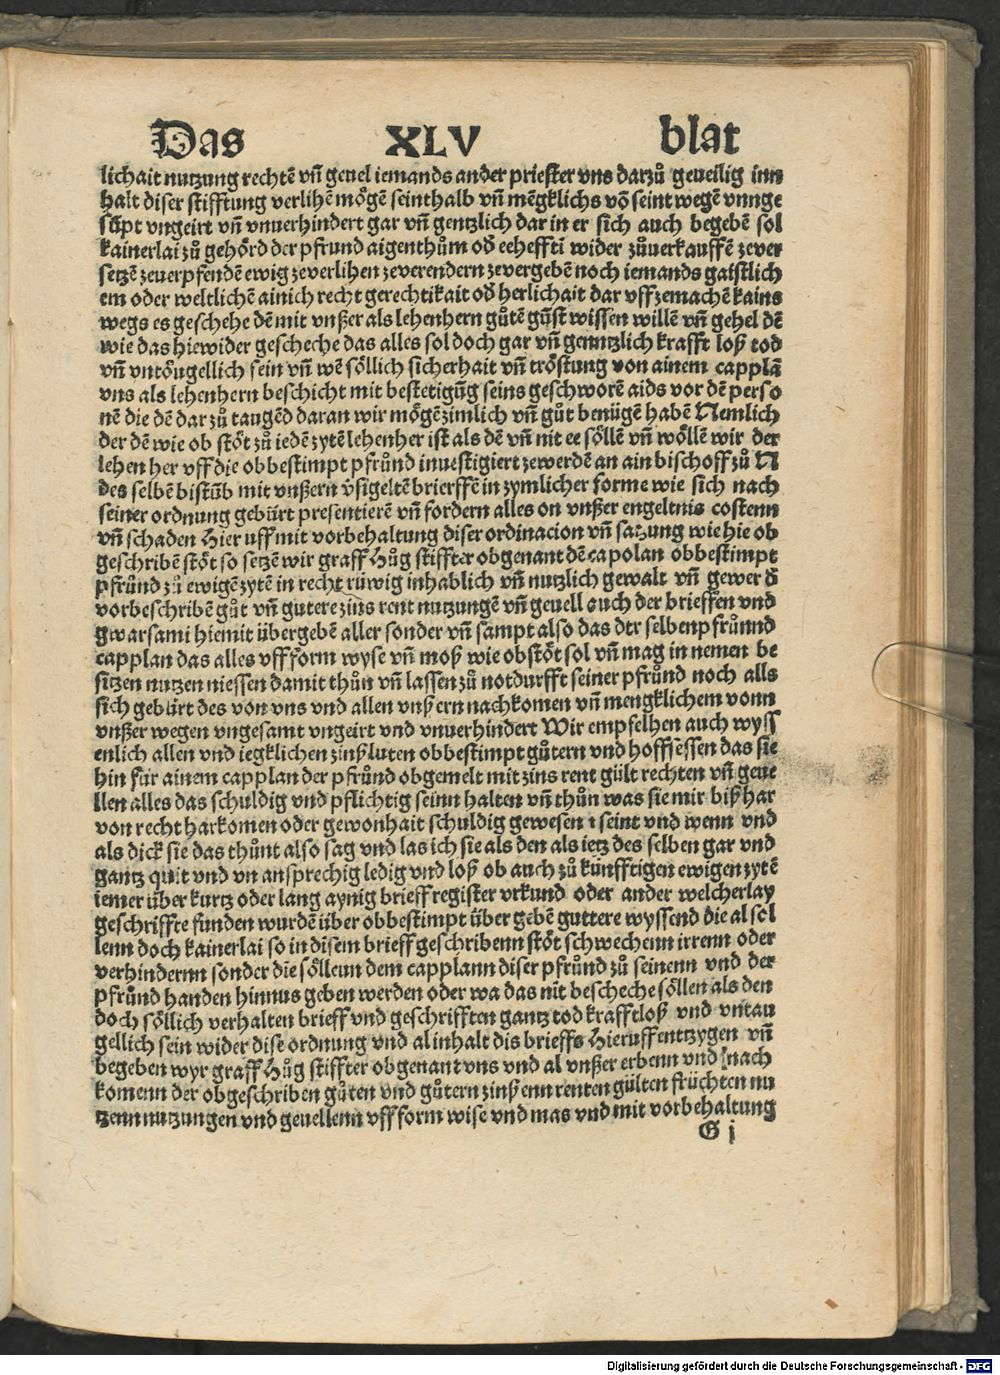 Das XLV blat
lichait nutzung rechtē vn̄ geuel iemands ander priester vns darzů geueilig inn
halt diser stifftung verlihē mögē seinthalb vn̄ mēgklichs vō seint wegē vnnge
sōpt vngeirt vn̄ vnuerhindert gar vn̄ gentzlich dar in er sich auch begebē sol
kainerlai zů gehörd der pfrund aigenthům od̄ eehefftī wider zůuerkauffē zever
setzē zeuerpfendē ewig zeverlihen zeverendern zevergebē noch iemands gaistlich
em oder weltlichē ainich recht gerechtikait od̄ herlichait dar vff zemachē kains
wegs es geschehe dē mit vnßer als lehenhern gůtē gūst wissen willē vn̄ gehel dē
wie das hiewider gescheche das alles sol doch gar vn̄ genntzlich krafft loß tod
vn̄ vntöugellich sein vn̄ wē söllich sicherhait vn̄ tröstung von ainem capplā
vns als lehenhern beschicht mit bestetigūg seins geschworē aids vor dē perso
nē die dē dar zů taugēd daran wir mögē zimlich vn̄ gůt benügē habē Nemlich
der dē wie ob stöt zů iedē zytē lehenher ist als dē vn̄ nit ee söllē vn̄ wöllē wir der
lehen her vff die obbestimpt pfrůnd inuestigiert zewerdē an ain bischoff zů N
des selbē bistūb mit vnßern v̄sigeltē brierffē in zymlicher forme wie sich nach
seiner ordnung gebürt presentierē vn̄ fordern alles on vnßer engeltnis costenn
vn̄ schaden Hier uff mit vorbehaltung diser ordinacion vn̄ satzung wie hie ob
geschribē stöt so setzē wir graff Hůg stiffter obgenant dē capolan obbestimpt
pfrůnd zů ewigē zytē in recht rüwig inhablich vn̄ nutzlich gewalt vn̄ gewer d̄
vorbeschribē gůt vn̄ gutere zins rent nutzungē vn̄ geuell ouch der brieffen vnd
gwarsami hiemit übergebē aller sonder vn̄ sampt also das der selben pfrůnnd
capplan das alles vff form wyse vn̄ moß wie obstöt sol vn̄ mag in nemen be
sitzen nutzen niessen damit thůn vn̄ lassen zů notdurfft seiner pfrůnd noch alls
sich gebürt des von vns vnd allen vnßern nachkomen vn̄ mengklichem vonn
vnßer wegen vngesamt vngeirt vnd vnuerhindert Wir empfelhen auch wyss
enlich allen vnd iegklichen zinßluten obbestimpt gůtern vnd hoffsessen das sie
hin für ainem capplan der pfrůnd obgemelt mit zins rent gült rechten vn̄ geue
llen alles das schuldig vnd pflichtig seinn halten vn̄ thůn was sie mir biß har
von recht harkomen oder gewonhait schuldig gewesen seint vnd wenn vnd
als dick sie das thůnt also sag vnd las ich sie als den als ietz des selben gar vnd
gantz quit vnd vn ansprechig ledig vnd loß ob auch zů künfftigen ewigen zytē
iemer über kurtz oder lang aynig brieff register vrkund oder ander welcherlay
geschriffte funden wurdē über obbestimpt über gebē guttere wyssend die al sol
lenn doch kainerlai so in disem brieff geschribenn stöt schwechenn irrenn oder
verhindernn sonder die söllenn dem capplann diser pfrůnd zů seinenn vnd der
pfrůnd handen hinnus geben werden oder wa das nit bescheche söllen als den
doch söllich verhalten brieff vnd geschrifften gantz tod krafftloß vnd vntau
gellich sein wider dise ordnung vnd al inhalt dis brieffs Hieruff entzygen vn̄
begeben wyr graff Hůg stiffter obgenant vns vnd al vnßer erbenn vnd nach
komenn der obgeschriben gůten vnd gůtern zinßenn renten gülten früchten nu
tzenn nutzungen vnd geuellenn vff form wise vnd mas vnd mit vorbehaltung
G j
Digitalisierung gefördert durch die Deutsche Forschungsgemeinschaft - DFG